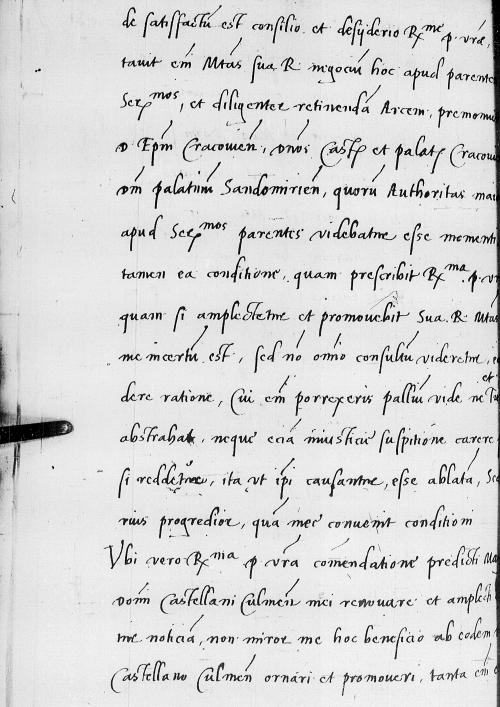 de satisfactū est consilio et desyderio Rx̄me p. vrāe,
tauit em̄ Mtas sua R. negociū hoc apud parente
Serx̄mos, et diligenter retinendā Arcem, premonui
D Epm̄ Cracouien̄, Dnōs Castx̄ et palatx̄ Cracoui
Dn̄m palatinū Sandomirien̄, quorū Authoritas ma
apud Serx̄mos parentes videbatur esse momenti
tamen ea conditione, quam prescribit Rx̄ma p. vr
quam si amplectetur et promouebit Sua R. Mtas
me incertū est, sed nō om̄io consultū videretur,
dere ratione, Cui em̄ porrexeris palliū vide ne et Tu
abstrahat, neque eciā iniusticie suspitione carere
si reddetur, ita vt ip̄i causantur, esse ablatā, Sed
rius progredior, quā mee conuenit conditioni
Vbi vero Rx̄ma p vrā comēdatione predicti Ma
Domī Castellani Culmen̄ mei renouare et amplecti
tur noticiā, non miror me hoc beneficio ab eodem
Castellano Culmen̄ ornari et promoueri, tanta em̄